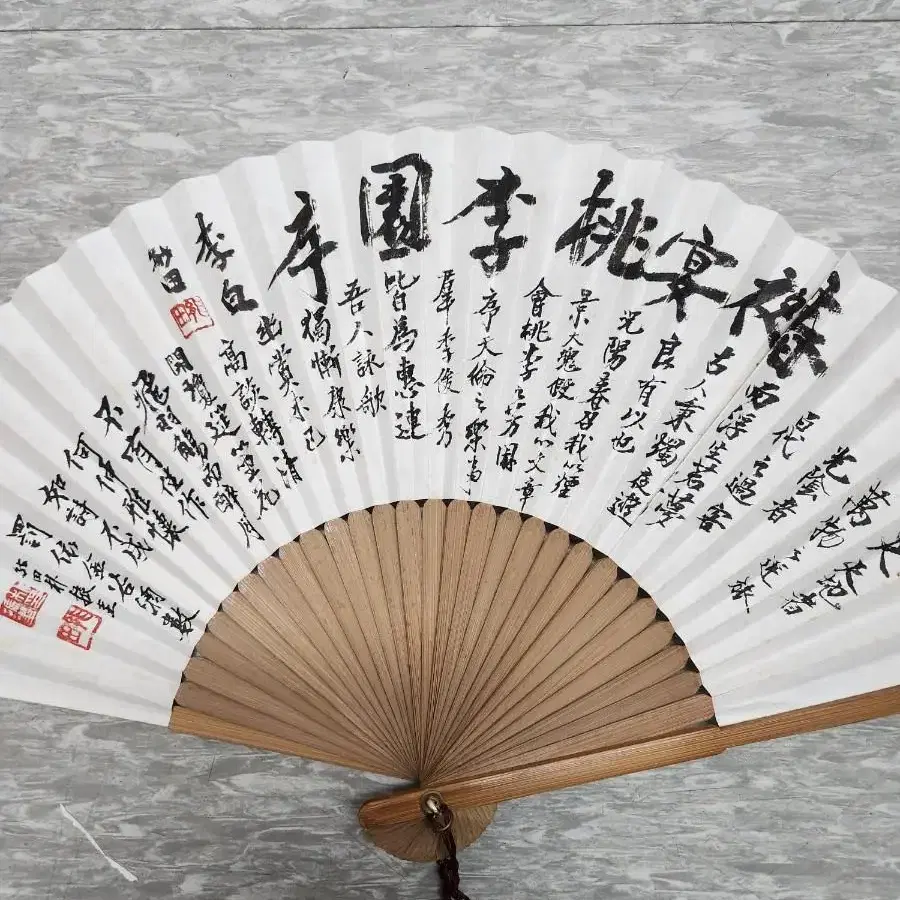 春夜宴桃李園序
李白
夫天地者
萬物之逆旅
光陰者
百代之過客
而浮生若夢
古人秉燭夜遊
良有以也
況陽春召我以煙
景大塊假我以文章
會桃李之芳園
序天倫之樂事
羣季俊秀
皆為惠連
吾人詠歌
獨慚康樂
幽賞未已
高談轉清
開瓊筵以坐花
飛羽觴而醉月
不有佳作
何伸雅懷
如詩不成
罰依金谷酒數